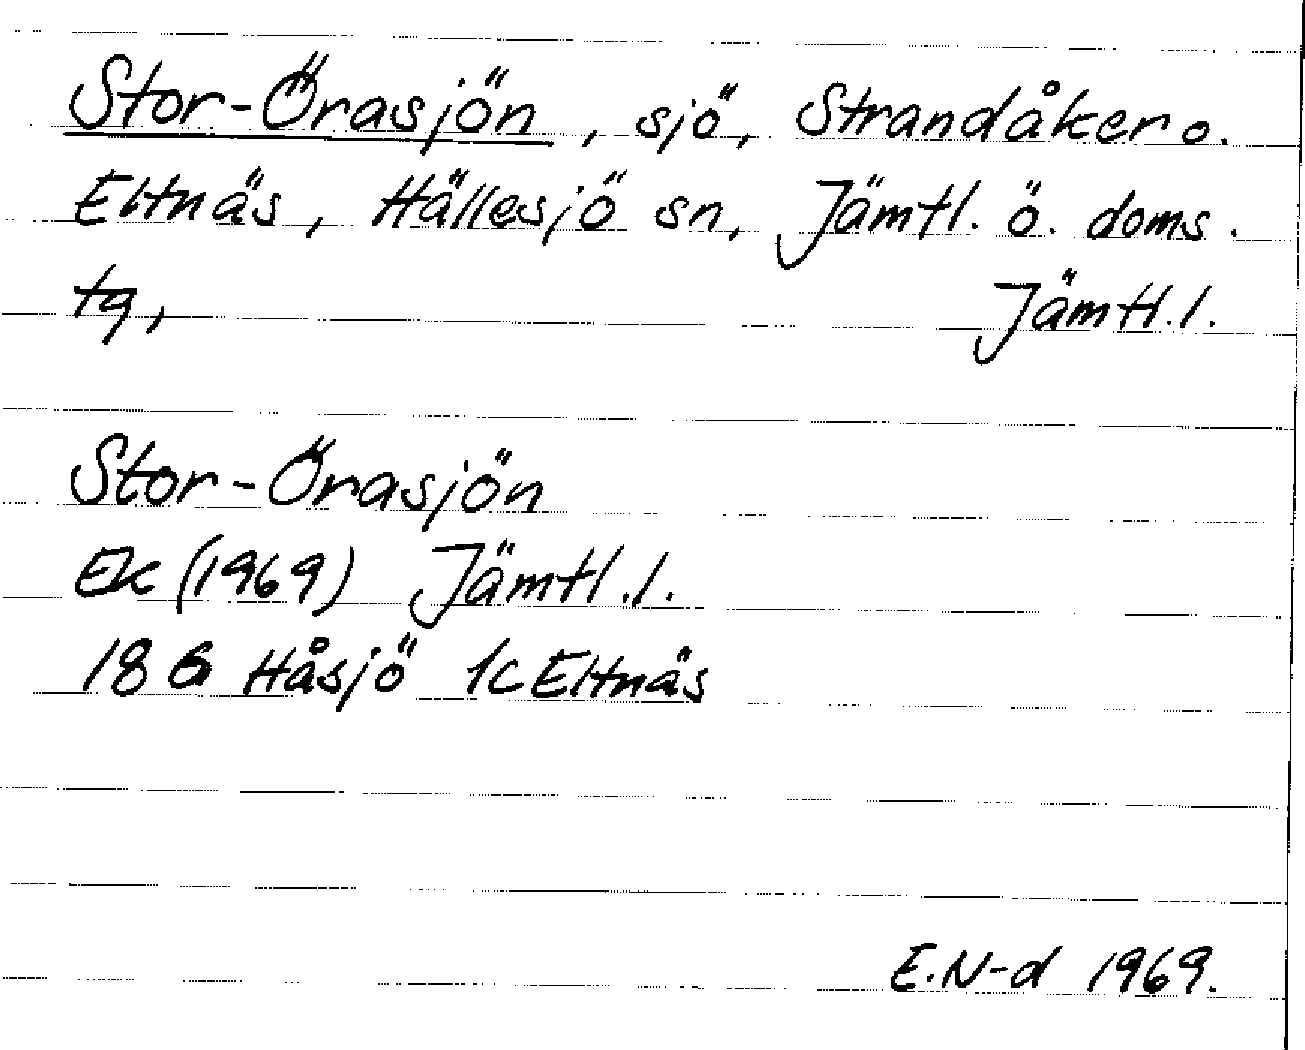 Stor-Örasjön, sjö, Strandåker o.
Eltnäs, Hällesjö sn, Jämtl. ö. doms.
tg, Jämtl.l.
Stor-Örasjön
Ek (1969) Jämtl.l.
18 G Håsjö 1c Eltnäs
E.N-d 1969.